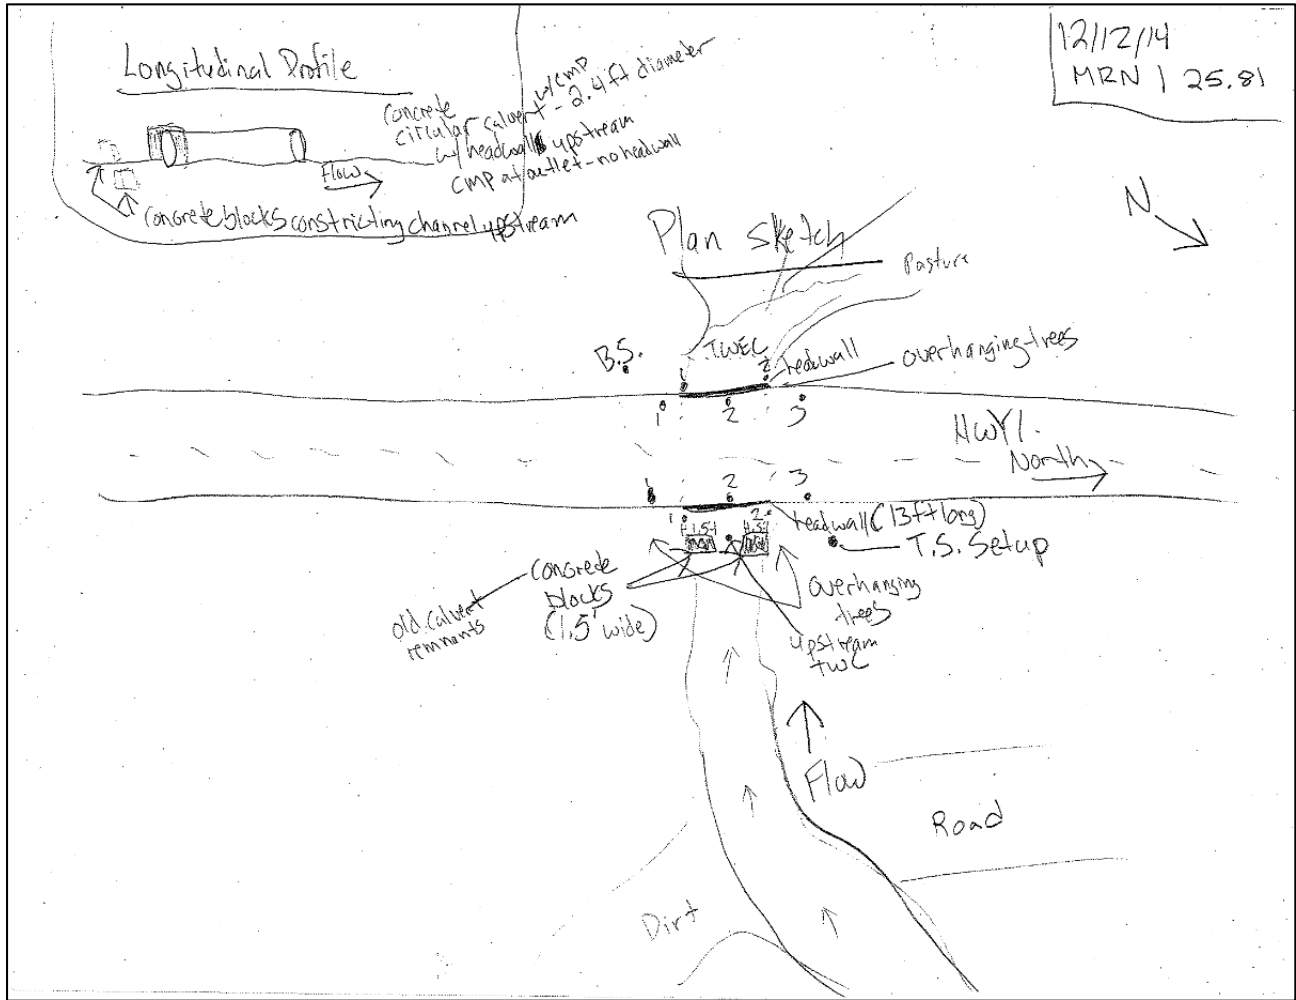 Longitudinal Profile
12/12/14
MRN 1 25.81
Concrete
circular calvert w/ CMP - 2.4 ft diameter
w/ headwalls upstream
CMP at outlet - no headwall
Flow
Concrete blocks constricting channel upstream
N
Plan Sketch
Pasture
B.S.
TWEC
1
2
headwall
overhanging trees
1
2
3
HWY 1.
North
1
2
3
1
2
headwall (13 ft long)
1.5
1.5
T.S. Setup
Concrete
blocks
(1.5' wide)
old calvert
remnants
overhanging
trees
upstream
TWC
Flow
Road
Dirt